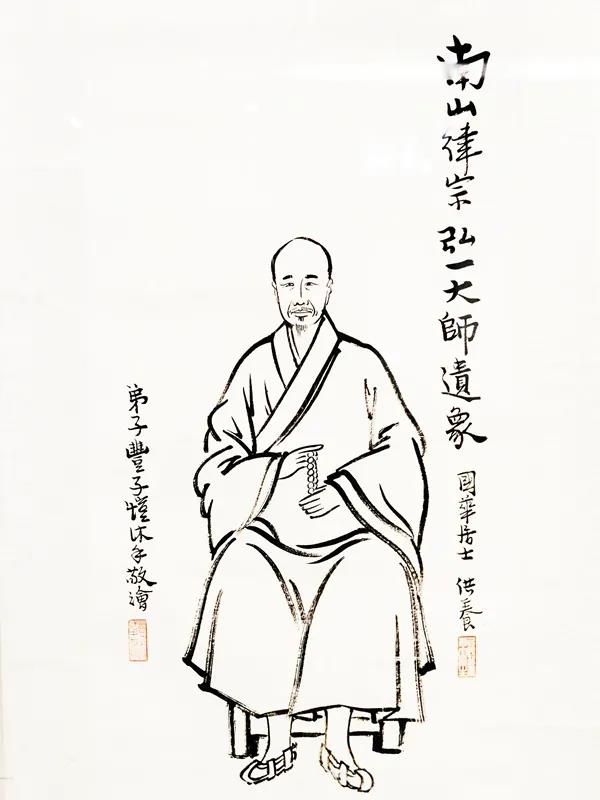 南山律宗弘一大師遺象
國華居士 供養
弟子豐子愷沐手敬繪